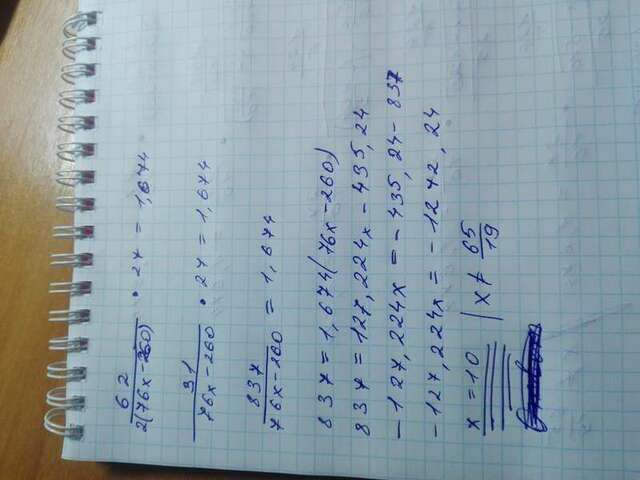 62/2(76x-260) · 27 = 1,674
31/76x-260 · 27 = 1,674
837/76x-260 = 1,674
837 = 1,674(76x-260)
837 = 127,224x - 435,24
-127,224x = -435,24 - 837
-127,224x = -1272,24
x = 10 | x ≠ 65/19